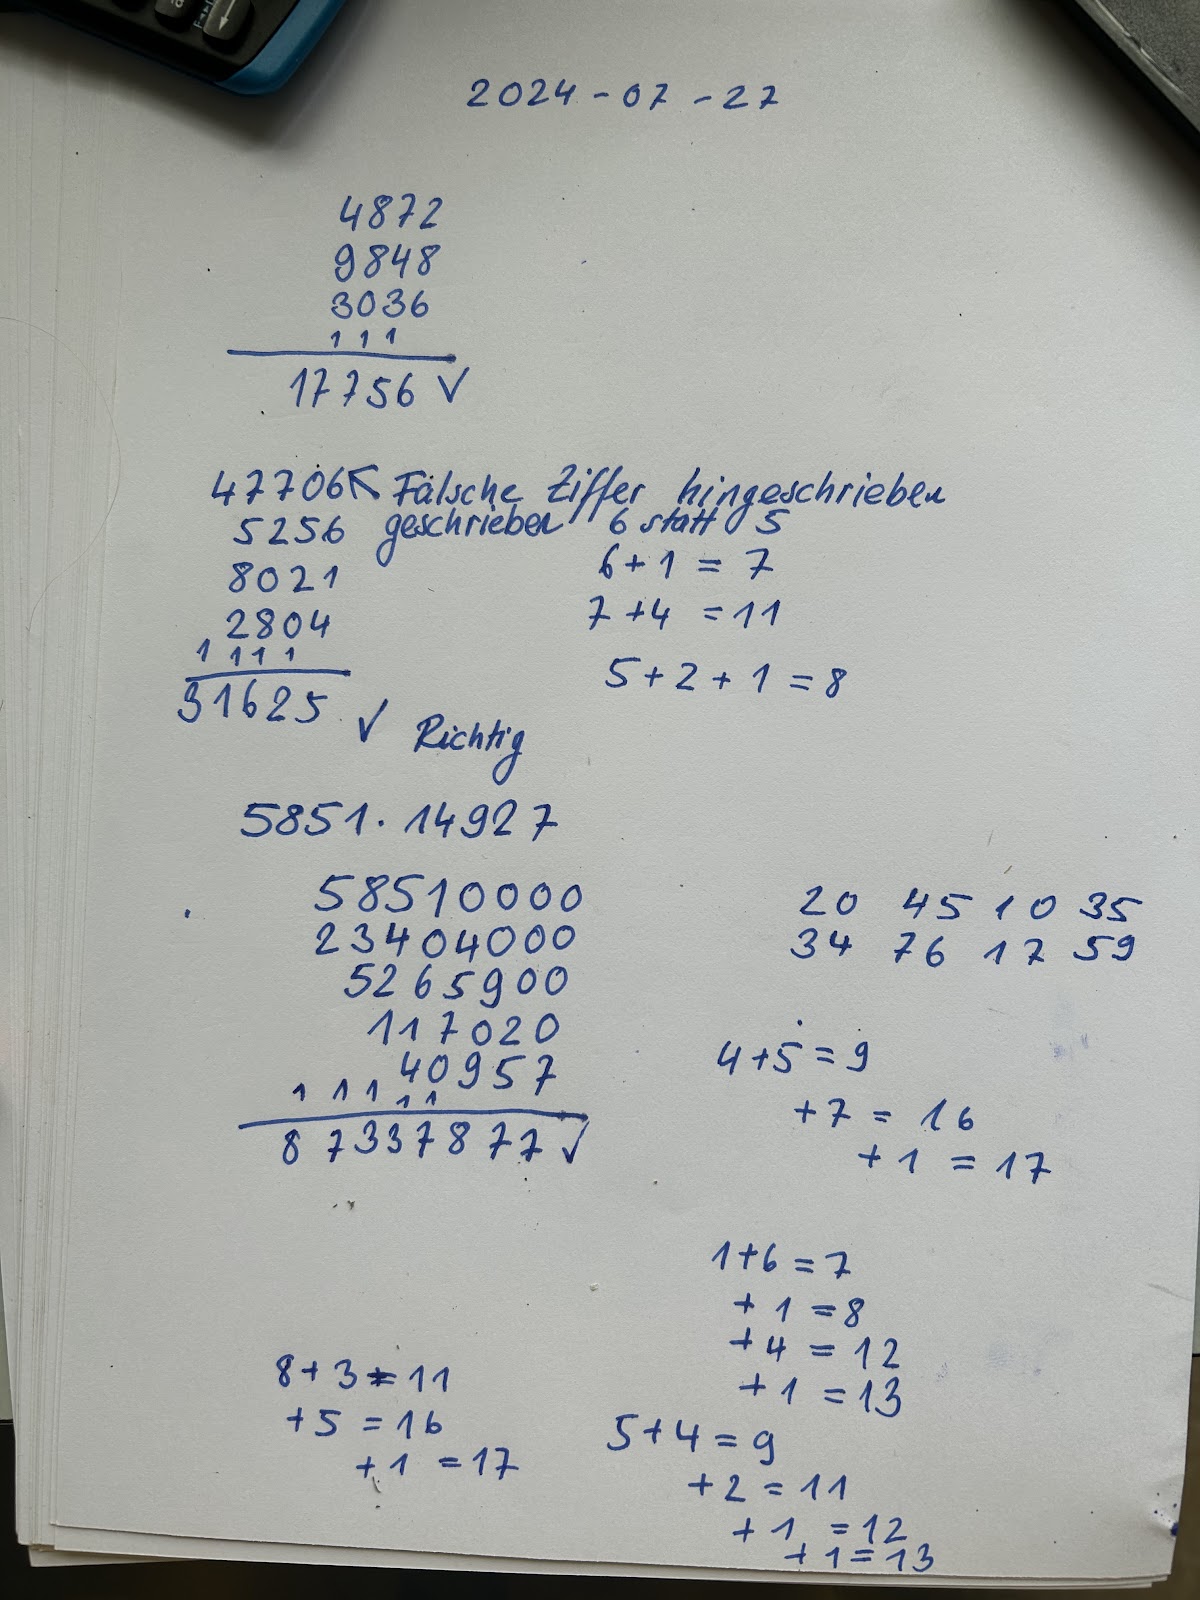 2024-07-27
4872
9848
3036
1 1 1
17756 ✓
47706 ↖ Falsche Ziffer hingeschrieben
5256 geschrieben 6 statt 5
8021 6+1 = 7
2804 7+4 = 11
1 1 1 1
31625 ✓ Richtig
5+2+1=8
5851 · 14927
58510000
23404000
5265900
117020
40957
1 1 1 1 1
87337877 ✓
20 45 10 35
34 76 17 59
4+5=9
+7 = 16
+1 = 17
1+6=7
+1=8
+4=12
+1=13
8+3=11
+5=16
+1=17
5+4=9
+2=11
+1=12
+1=13